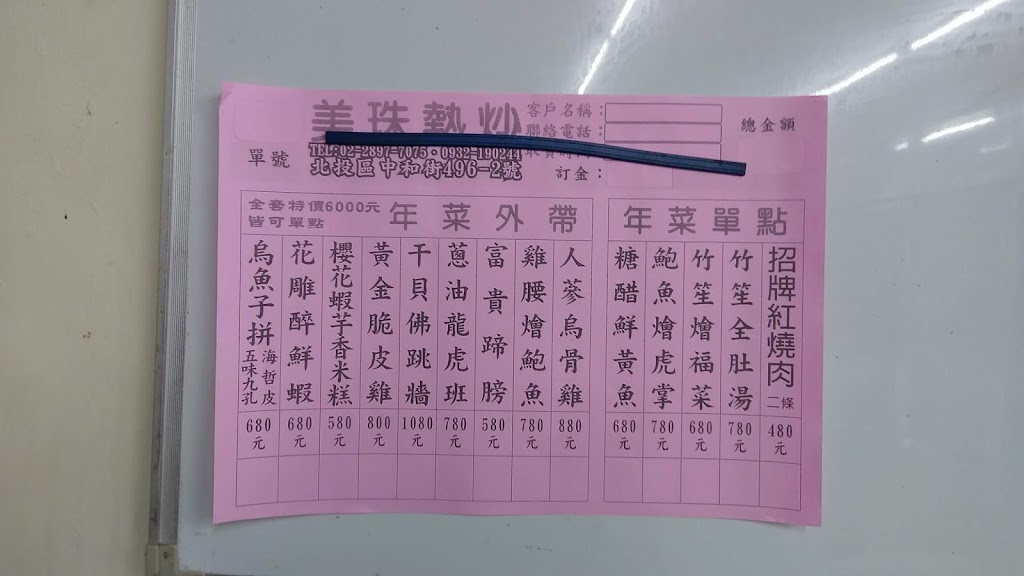 美珠熱炒
TEL:02-2897-7075・0932-190244
北投區中和街496-2號
單號
客戶名稱:
聯絡電話:
訂金:
總金額
全套特價6000元
皆可單點
年菜外帶
烏魚子拼 海哲皮 五味九孔 680元
花雕醉鮮蝦 680元
櫻花蝦芋香米糕 580元
黃金脆皮雞 800元
干貝佛跳牆 1080元
蔥油龍虎班 780元
富貴蹄膀 580元
雞腰燴鮑魚 780元
人蔘烏骨雞 880元
年菜單點
糖醋鮮黃魚 680元
鮑魚燴虎掌 780元
竹笙燴福菜 680元
竹笙全肚湯 780元
招牌紅燒肉 二條 480元